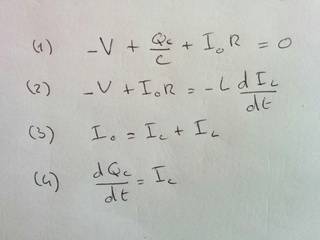 (1) -V + Qc/C + I₀R = 0
(2) -V + I₀R = -L dI_L/dt
(3) I₀ = I_C + I_L
(4) dQc/dt = I_C